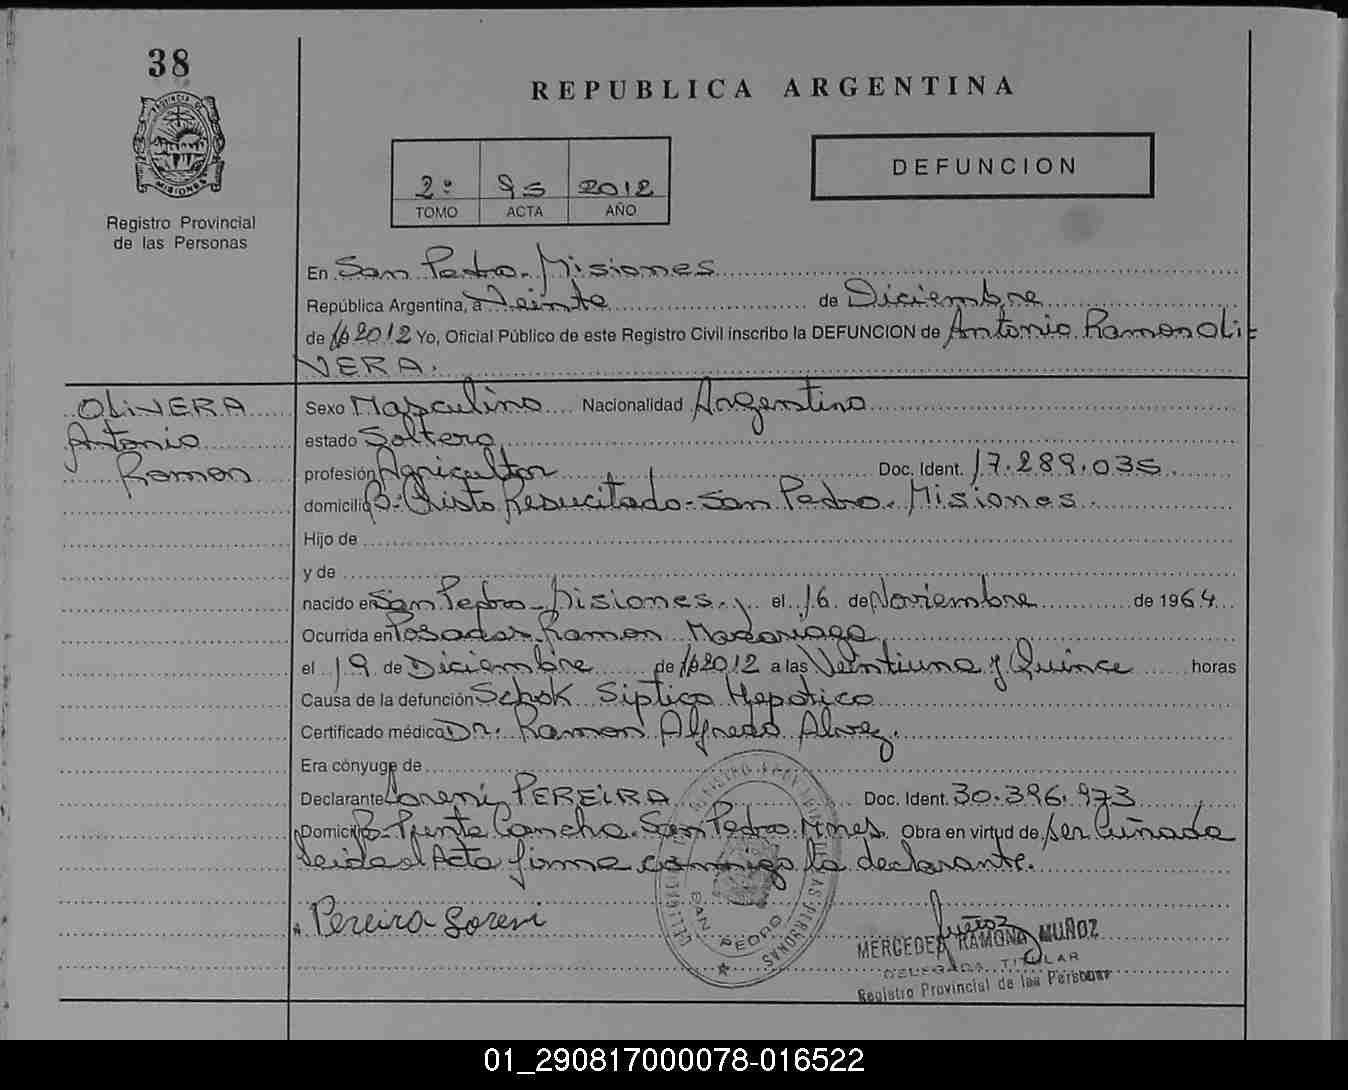 38
REPUBLICA ARGENTINA
PROVINCIA DE
MISIONES
Registro Provincial
de las Personas
2º 95 2012
TOMO ACTA AÑO
DEFUNCION
En San Pedro - Misiones
República Argentina, a Veinte de Diciembre
de 2012 Yo, Oficial Público de este Registro Civil inscribo la DEFUNCION de Antonio Ramon OLi-
VERA.
OLiVERA
Antonio
Ramon
Sexo Masculino Nacionalidad Argentino
estado Soltero
profesión Agricultor Doc. Ident. 17.289.035
domicilio B- Cristo Resucitado - San Pedro - Misiones.
Hijo de
y de
nacido en San Pedro - Misiones. el 16 de Noviembre de 1964
Ocurrida en Posadas Ramon Madariaga
el 19 de Diciembre de 2012 a las Veintiuna y Quince horas
Causa de la defunción Schok Siptico Hepatico
Certificado médico DR. Ramon Alfredo Alvez.
Era cónyuge de
Declarante Loreni PEREiRA Doc. Ident. 30.396.973
Domicilio B- Puente Cancha - San Pedro - Mnes. Obra en virtud de ser Cuñada
leida el Acta firma conmigo la declarante.
Pereira Loreni
SAN PEDRO
Muñoz
MERCEDES RAMONA MUÑOZ
DELEGADA TITULAR
Registro Provincial de las Personas
01_290817000078-016522